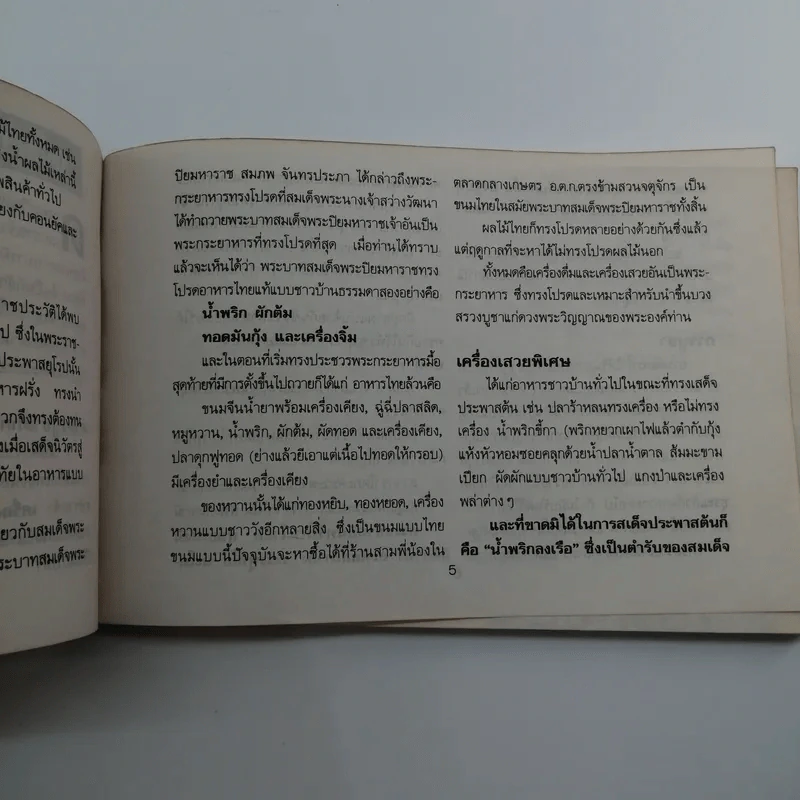 ม้ไทยทั้งหมด เช่น
งน้ำผลไม้เหล่านี้
พสินค้าทั่วไป
ยงกับคอนยัคและ
ชประวัติได้พบ
ป ซึ่งในพระราช-
ประพาสยุโรปนั้น
หารฝรั่ง ทรงนำ
วกจึงทรงต้องทน
งเมื่อเสด็จนิวัตรสู่
ทัยในอาหารแบบ
ยวกับสมเด็จพระ
ระบาทสมเด็จพระ
ปิยมหาราช สมภพ จันทรประภา ได้กล่าวถึงพระ-
กระยาหารทรงโปรดที่สมเด็จพระนางเจ้าสว่างวัฒนา
ได้ทำถวายพระบาทสมเด็จพระปิยมหาราชเจ้าอันเป็น
พระกระยาหารที่ทรงโปรดที่สุด เมื่อท่านได้ทราบ
แล้วจะเห็นได้ว่า พระบาทสมเด็จพระปิยมหาราชทรง
โปรดอาหารไทยแท้แบบชาวบ้านธรรมดาสองอย่างคือ
น้ำพริก ผักต้ม
ทอดมันกุ้ง และเครื่องจิ้ม
และในตอนที่เริ่มทรงประชวรพระกระยาหารมื้อ
สุดท้ายที่มีการตั้งขึ้นไปถวายก็ได้แก่ อาหารไทยล้วนคือ
ขนมจีนน้ำยาพร้อมเครื่องเคียง, ฉู่ฉี่ปลาสลิด,
หมูหวาน, น้ำพริก, ผักต้ม, ผัดทอด และเครื่องเคียง,
ปลาดุกฟูทอด (ย่างแล้วยีเอาแต่เนื้อไปทอดให้กรอบ)
มีเครื่องยำและเครื่องเคียง
ของหวานนั้นได้แก่ทองหยิบ, ทองหยอด, เครื่อง
หวานแบบชาววังอีกหลายสิ่ง ซึ่งเป็นขนมแบบไทย
ขนมแบบนี้ปัจจุบันจะหาซื้อได้ที่ร้านสามพี่น้องใน
ตลาดกลางเกษตร อ.ต.ก.ตรงข้ามสวนจตุจักร เป็น
ขนมไทยในสมัยพระบาทสมเด็จพระปิยมหาราชทั้งสิ้น
ผลไม้ไทยก็ทรงโปรดหลายอย่างด้วยกันซึ่งแล้ว
แต่ฤดูกาลที่จะหาได้ไม่ทรงโปรดผลไม้นอก
ทั้งหมดคือเครื่องดื่มและเครื่องเสวยอันเป็นพระ-
กระยาหาร ซึ่งทรงโปรดและเหมาะสำหรับนำขึ้นบวง
สรวงบูชาแก่ดวงพระวิญญาณของพระองค์ท่าน
เครื่องเสวยพิเศษ
ได้แก่อาหารชาวบ้านทั่วไปในขณะที่ทรงเสด็จ
ประพาสต้น เช่น ปลาร้าหลนทรงเครื่อง หรือไม่ทรง
เครื่อง น้ำพริกขี้กา (พริกหยวกเผาไฟแล้วตำกับกุ้ง
แห้งหัวหอมซอยคลุกด้วยน้ำปลาน้ำตาล ส้มมะขาม
เปียก ผัดผักแบบชาวบ้านทั่วไป แกงป่าและเครื่อง
พล่าต่าง ๆ
และที่ขาดมิได้ในการสเด็จประพาสต้นก็
คือ “น้ำพริกลงเรือ” ซึ่งเป็นตำรับของสมเด็จ
5